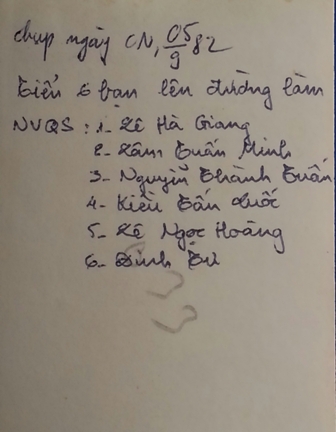 chụp ngày CN, 05/9 82
Tiễn 6 bạn lên đường làm
NVQS : 1- Lê Hà Giang
2- Lâm Tuấn Minh
3- Nguyễn Thành Tuấn
4- Kiều Tấn Quốc
5- Lê Ngọc Hoàng
6- Đinh Tư